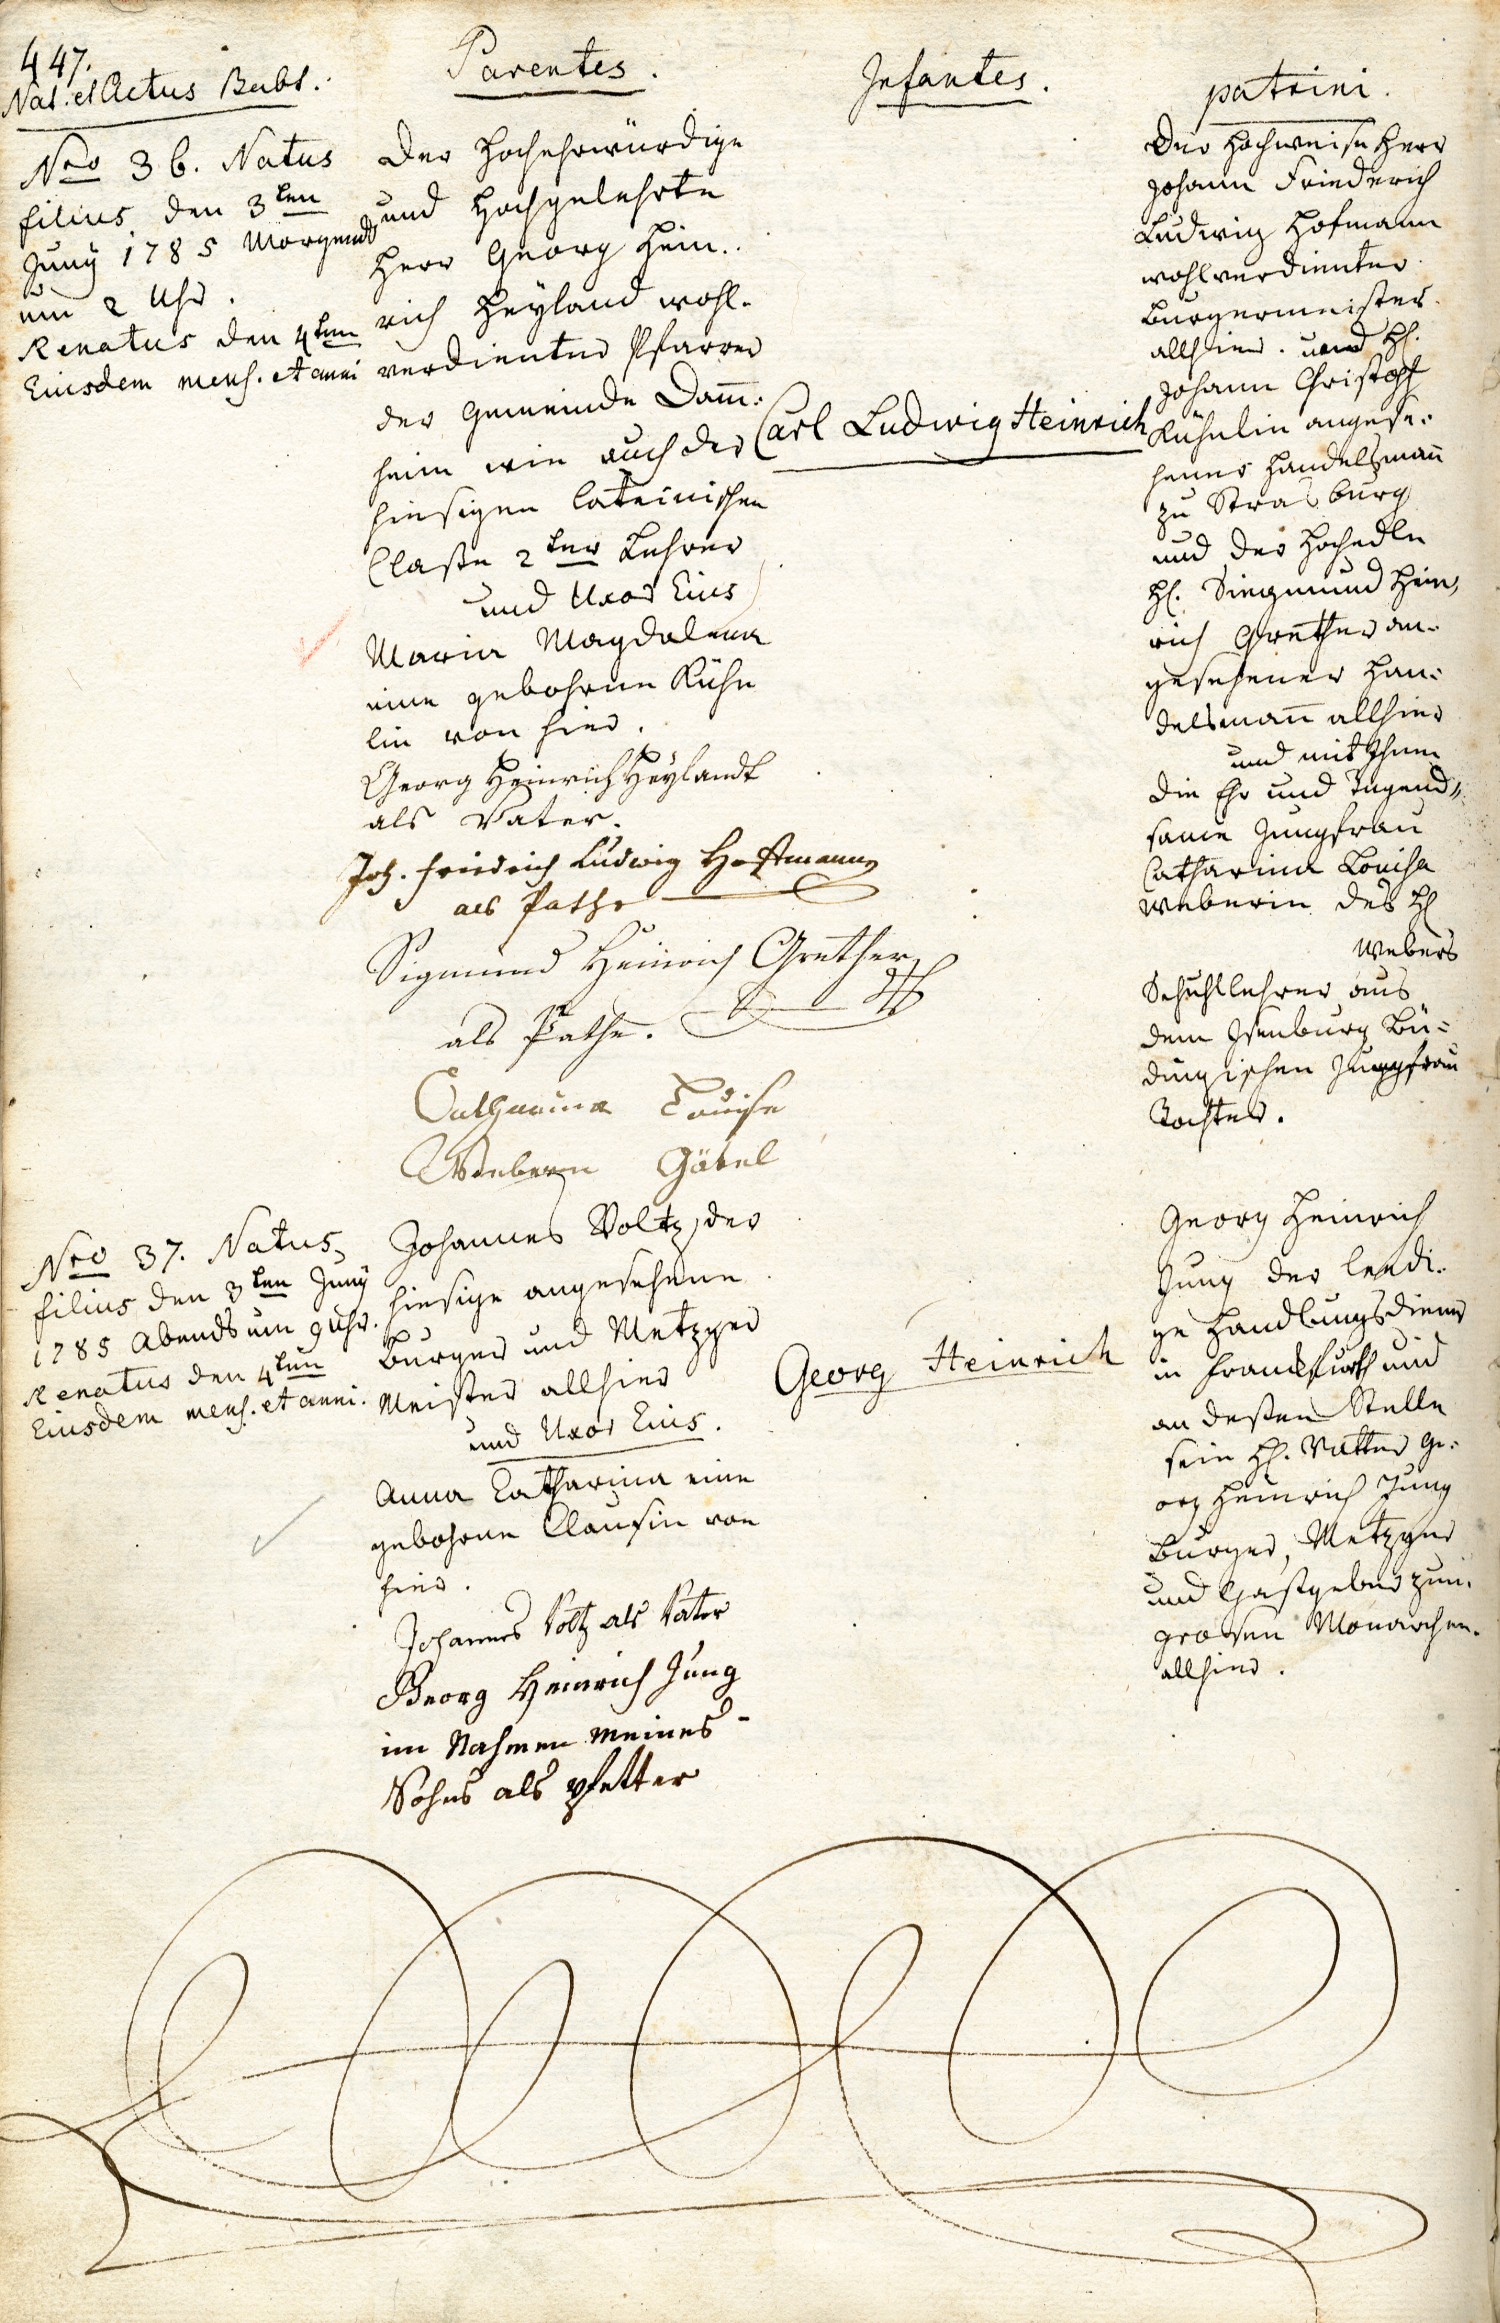 447.
Nat. et Actus Babt.
Parentes.
Infantes.
patrini.
Nro 36. Natus
filius den 3ten
Juny 1785 Morgends
um 2 Uhr.
Renatus den 4ten
Eiusdem mens. et anni
Der Hochehrwürdige
und Hochgelehrte
Herr Georg Hein..
rich Heyland wohl-
verdienter Pfarrer
der Gemeinde Dam̄:
heim wie auch der
hiesigen lateinischen
Claße 2ter Lehrer
und Uxor Eius
Maria Magdalena
eine gebohrne Kühn
lin von hier.
Georg Heinrich Heylandt
als Vater.
Joh. Friedrich Ludwig Hoffmann
als Pathe
Sigmund Heinrich Grether
als Pathe.
Catharina Louise
Webern Gödel
Carl Ludwig Heinrich
Der Hochweise Herr
Johann Friederich
Ludwig Hofmann
wohlverdienter
Burgermeister
allhier. und H.
Johann Christoff
Kühnlin angese:
hener Handelsmañ
zu Strasburg
und der Hochedle
H. Siegmund Hein,
rich Grether an-
gesehener Han:
delsmañ allhier
und mit Ihnen
die Ehr und Tugend„
same Jungfrau
Catharina Louisa
Weberin des H
Webers
Schuhllehrer aus
dem Isenburg Bü=
dingischen Jungfrau
Tochter.
Nro 37. Natus
filius den 3ten Juny
1785 Abends um 9 Uhr.
Renatus den 4ten
Eiusdem mens. et anni.
Johannes Voltz, der
hiesige angesehene
Burger und Metzger
Meister allhier
und Uxor Eius.
Anna Catharina eine
gebohrne Clausin von
hier.
Johannes Voltz als Vater
Georg Heinrich Jung
im Nahmen meines
Sohns als Pfetter
Georg Heinrich
Georg Heinrich
Jung der ledi-
ge Handlungsdiener
in Franckfurth und
an deßen Stelle
sein H. Vatter Ge:
org Heinrich Jung
Burger, Metzger
und Gastgeber zum
grosen Monarchen
allhier.